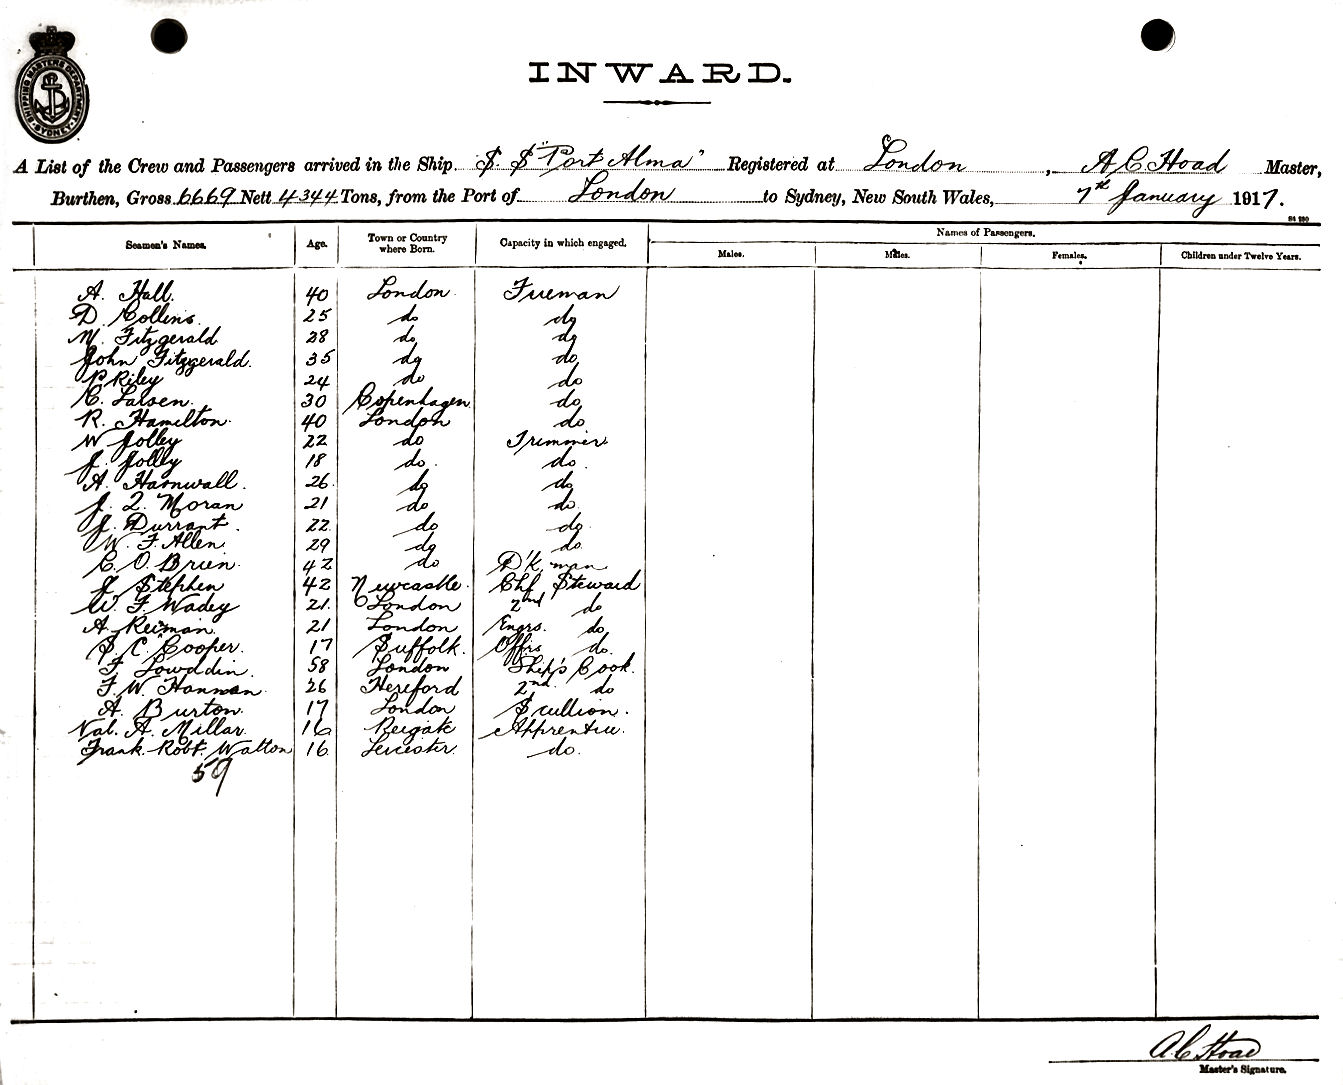 SHIPPING MASTERS DEPARTMENT SYDNEY
INWARD.
A List of the Crew and Passengers arrived in the Ship S. S "Port Alma" Registered at London, A C Hoad Master,
Burthen, Gross 6669 Nett 4344 Tons, from the Port of London to Sydney, New South Wales, 7th January 1917.
Seamen's Names. Age. Town or Country where Born. Capacity in which engaged. Names of Passengers.
Males. Males. Females. Children under Twelve Years.
A. Hall. 40 London Fireman
D. Collins 25 do do
M. Fitzgerald 28 do do
John Fitzgerald. 35 do do
P Riley 24 do do
C. Larsen. 30 Copenhagen do
R. Hamilton 40 London do
W Jolley 22 do Trimmer
J. Jolley 18 do do
A. 26 do do
J. Moran 21 do do
J. Durrant. 22 do do
W. F. Allen 29 do do
C. O. Brien. 42 do D'k man
J Stephen 42 Newcastle Chf Steward
W. F. Wadey 21 London 2nd do
A. Reiman. 21 London Engrs. do
S. C. Cooper. 17 Suffolk. Offrs do.
F. Lowddin. 58 London Ship's Cook.
F. W. Hanman 26 Hereford 2nd do
A. Burton. 17 London Scullion.
Val. A. Millar. 16 Reigate Apprentice.
Frank Robt. Walton 16 Leicester do.
59
A C Hoad
Master's Signature.